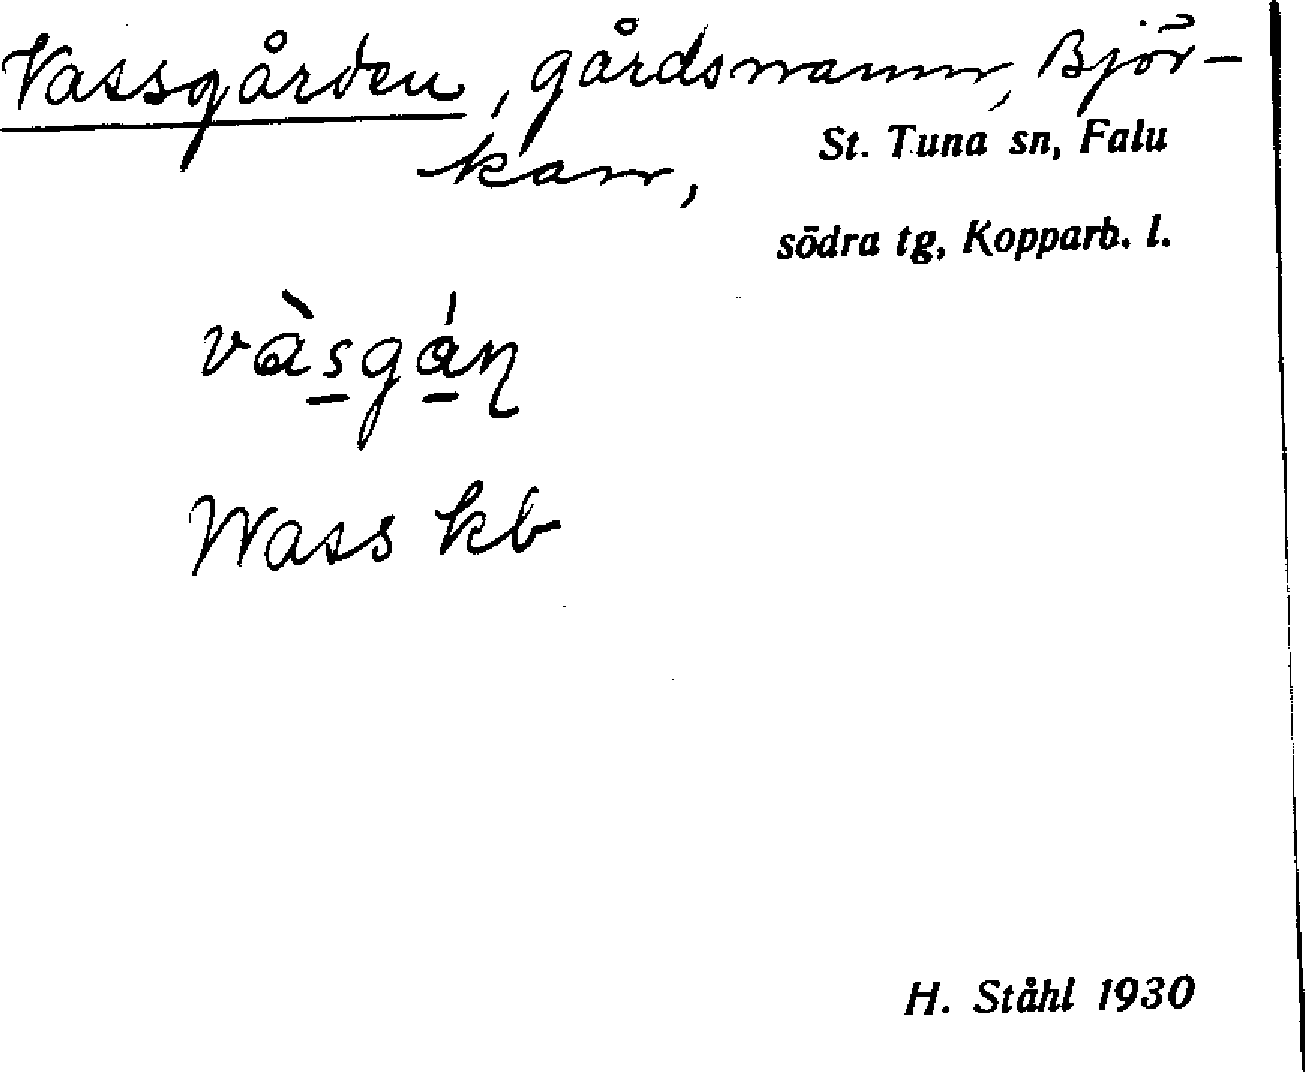 Vassgården, gårdsnamn, Björ-
kan,
St. Tuna sn, Falu
södra tg, Kopparb. l.
Wass kb
H. Ståhl 1930